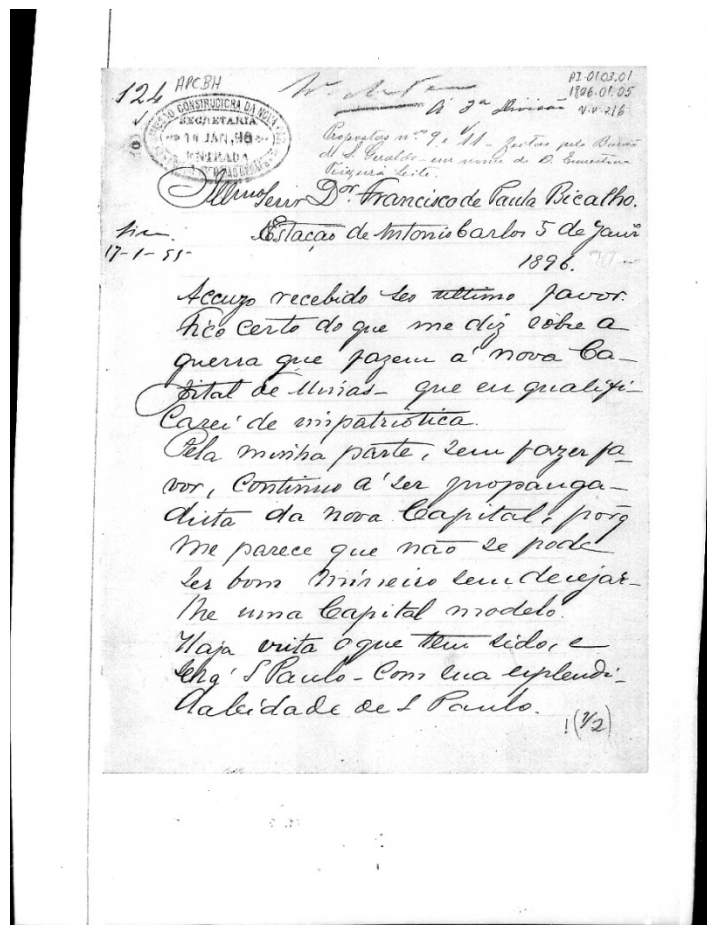 124 APCBH
PI.0103.01
1896.01.05
V.V-216
COMMISSÃO CONSTRUCTORA DA NOVA
SECRETARIA
14 JAN. 96
ENTRADA
Á 3ª Divisão
Propostas nos 9 e 11 - feitas pelo Barão
de S. Geraldo - em nome de D. Ernestina
Teixeira Leite.
Illmo Senr Dor Francisco de Paula Bicalho.
Estação de Antonio Carlos 5 de Janr
17-1-
1896.
Accuzo recebido seo ultimo favor.
Fico certo do que me diz sôbre a
guerra que fazem á nova Ca-
pital de Minas - que eu qualifi-
carei de impatriotica.
Pela minha parte, sem fazer fa
vor, continuo á ser propanga-
dista da nova Capital, porq
me parece que não se pode
ser bom mineiro sem desejar-
lhe uma Capital modelo.
Haja vista o que tem sido, e
S Paulo - com sua esplendi-
da Cidade de S Paulo.
1(1/2)